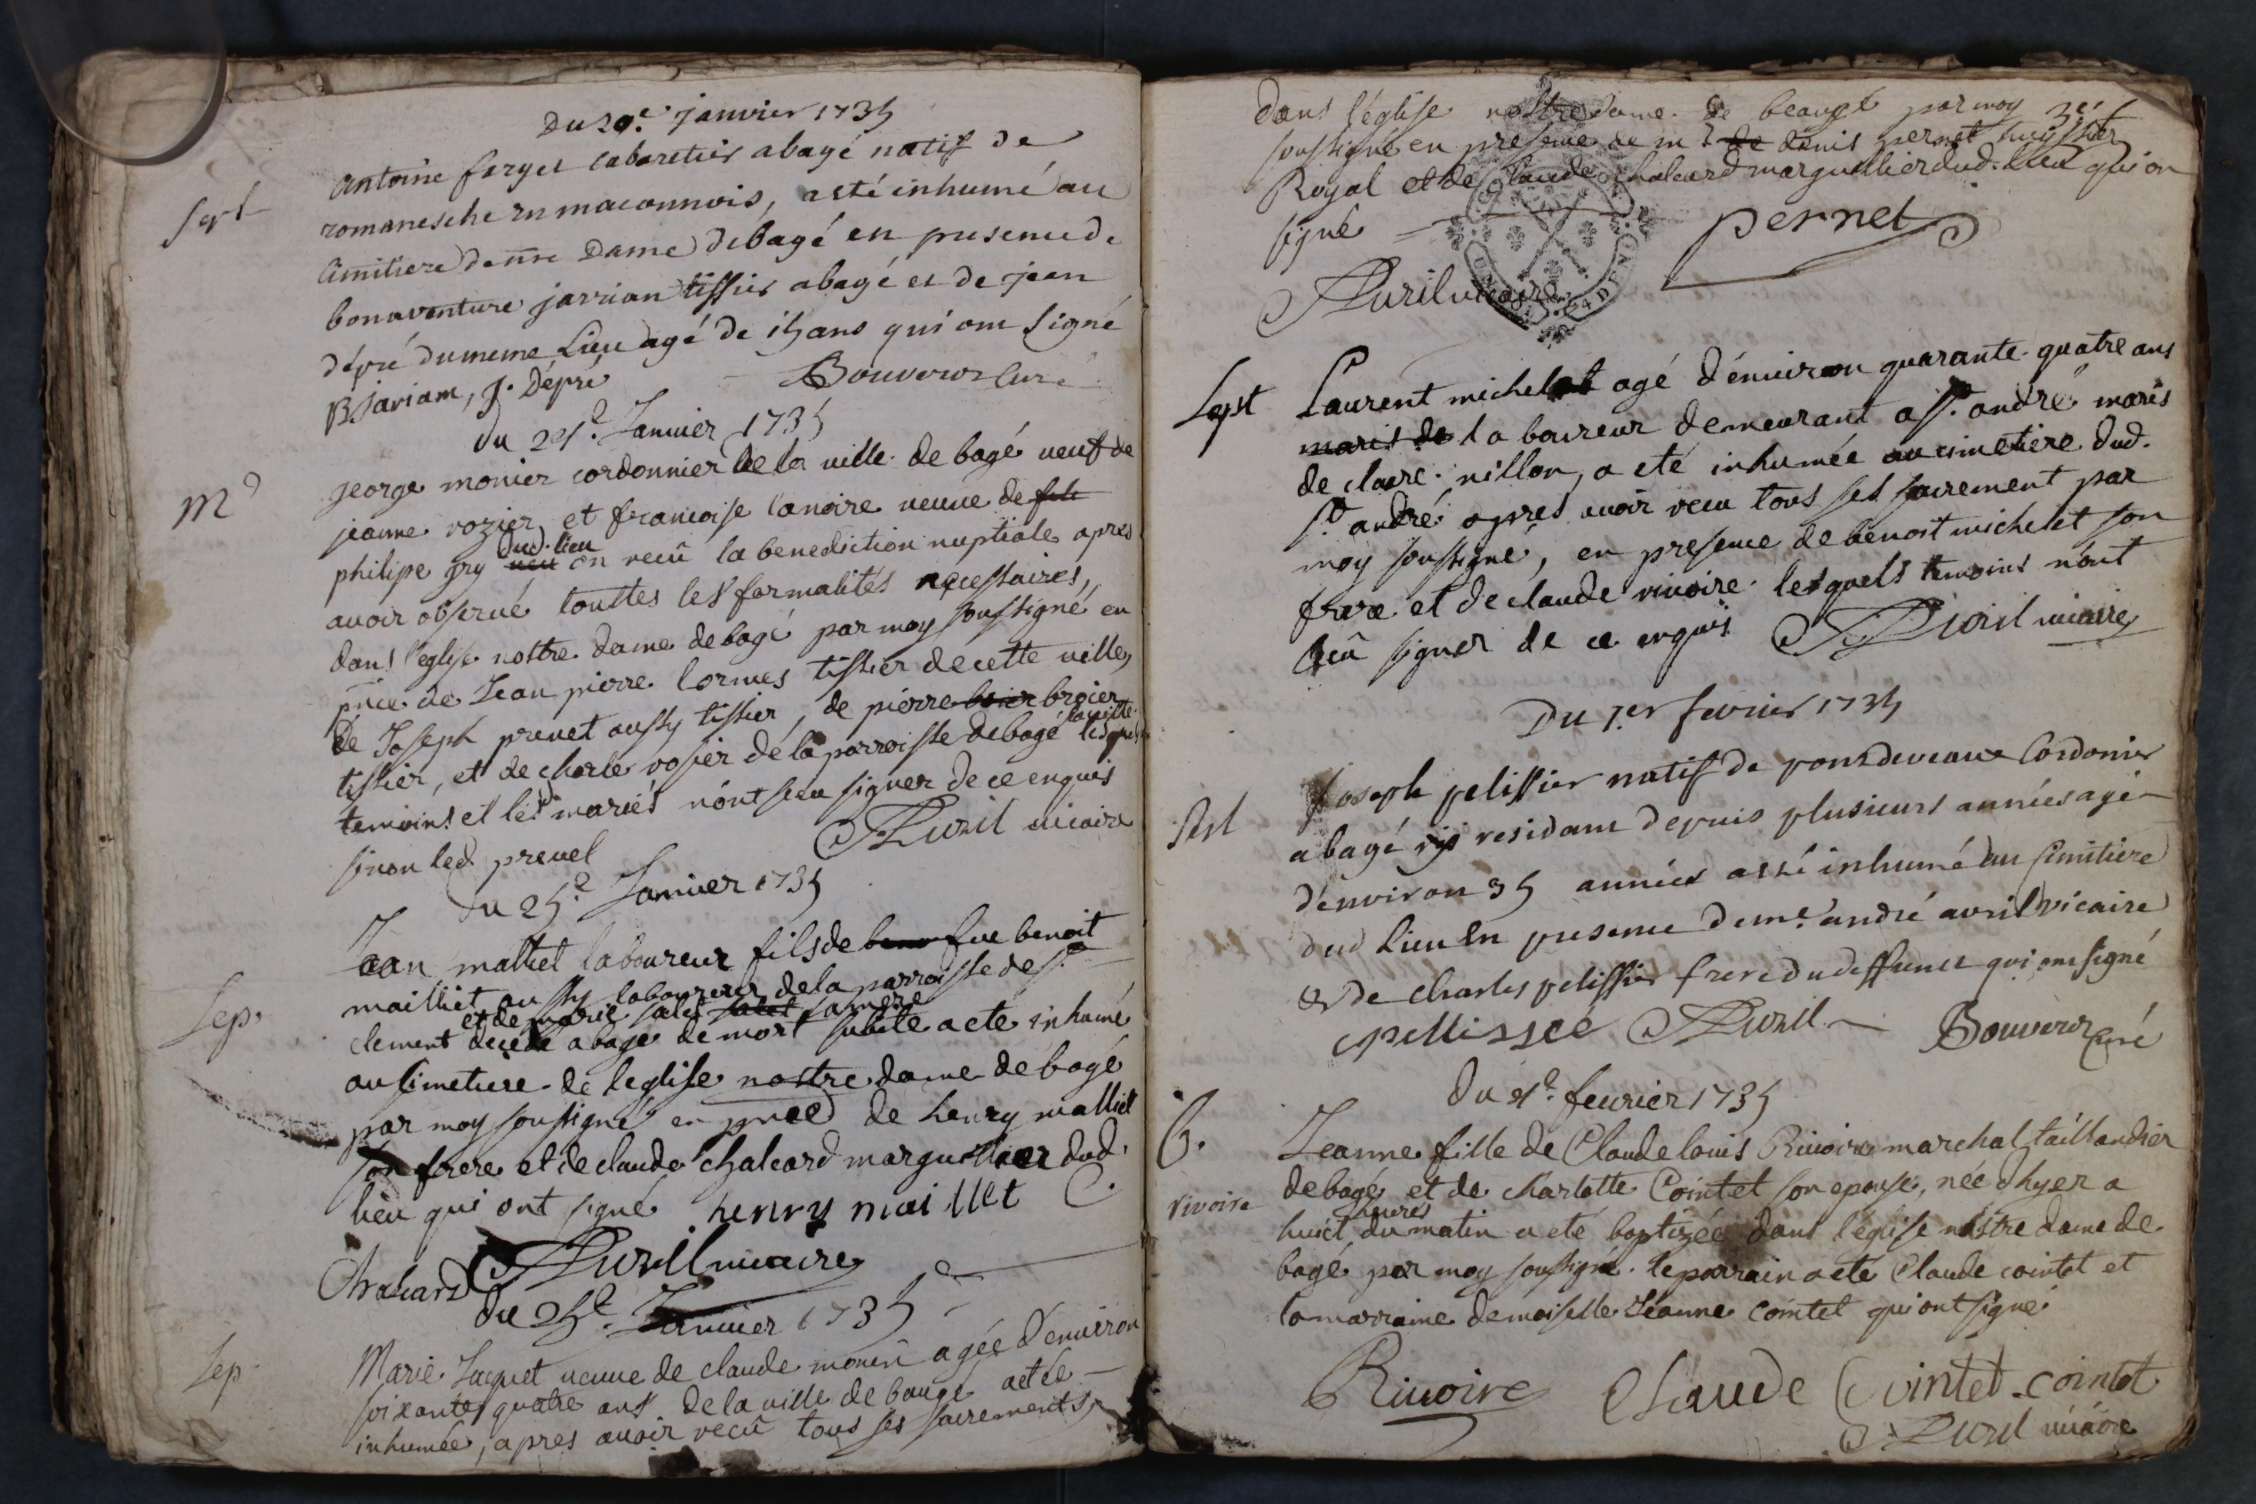 du 20e. janvier 1735
Sept
antoine farget cabaretier a bagé natif de
romanesche en maconnois, a eté inhumé au
cimitiere de nre Dame de bagé en presence de
bonaventure jarrian tissier a bagé et de jean
dépré du meme Lieu agé de ans qui ont Signé
B jariam, J. Dépré Bouveur Curé
du 21e. Janvier 1735
M
george monier cordonnier de la ville de bagé veuf de
jeanne rozier et francoise lanoire veuve de feh
philipe gry dud. lieu on recû la benediction nuptiale apres
avoir observé touttes les formalités necessaires,
dans l'eglise nostre dame de bagé par moy soussigné en
pnce de Jean pierre lormes tissier de cette ville,
de Joseph prevet aussy tissier, de pierre broier
tissier, et de charle rosier de la parroisse de bagé la ville lesquels
temoins et les mariés n'ont sceu signer de ce enquis
sinon led. prevel Avril vicaire
du 25e. Janvier 1735
Sep.
Jean malliet laboureur fils de feu benoit
mailliet aussy laboureur de la parroisse de St.
et de marie sales sa mere
clement decedé a bagé de mort subite a ete inhumé
au simetiere de leglise nostre dame de bagé
par moy soussigné en pnce de henry malliet
son frere et de claude chaleard marguillier dud.
lieu qui ont signé henry maillet
Chaleard Avril vicaire
du 25e. Janvier 1735
Sep.
Marie Jacquet veuve de claude monin agée d'environ
soixante quatre ans de la ville de baugé a eté
inhumée, apres avoir recû tous ses sacrements,
dans l'eglise nostre dame de beaugé par moy
soussigné en presence de mr. de denis pernet huissier
Royal et de Claude chaleard marguillier dud. lieu qui on
signé pernet
Avril vicaire
Sept
Laurent michelet agé d'environ quarante quatre ans
maris de laboureur demeurant a St. andré maris
de claire nillon, a eté inhumée au cimetiere dud.
St. andré apres avoir recu tous ses sacrement par
moy soussigné, en presence de benoit michelet son
frere et de claude rivoire lesquels temoins n'ont
sceu signer de ce enquis Avril vicaire
Du 1.er fevrier 1735
joseph pelissier natif de pontdevaux Cordonier
a bagé y residant depuis plusieurs années agé
d'environ 35 années a eté inhumé au simitiere
dud Lieu En presence de me. andré avril vicaire
et de charles pelissier frere du deffunct qui ont signé
pellissee Avril Bouveur curé
du 4e. fevrier 1735
B.
rivoire
Jeanne fille de Claude louis Rivoire marchal taillandier
de bagé et de charlotte Cointet son epouse, née d'hyer a
huict heures du matin a eté baptizée dans l'eglise nostre dame de
bagé par moy soussigné. le parrain a eté Claude cointet et
la marraine demoiselle Jeanne Cointet qui ont signé
Rivoire Claude Cointet cointet
Avril vicaire